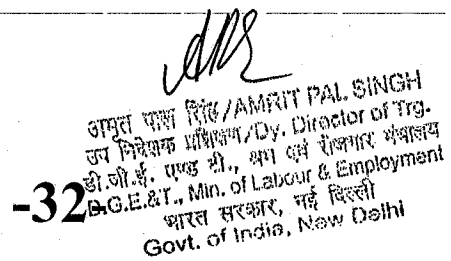 अमृत पाल सिंह/AMRIT PAL SINGH
उप निदेशक प्रशिक्षण/Dy. Director of Trg.
डी.जी.ई. एण्ड टी., श्रम एवं रोजगार मंत्रालय
D.G.E.&T., Min. of Labour & Employment
-32
भारत सरकार, नई दिल्ली
Govt. of India, New Delhi